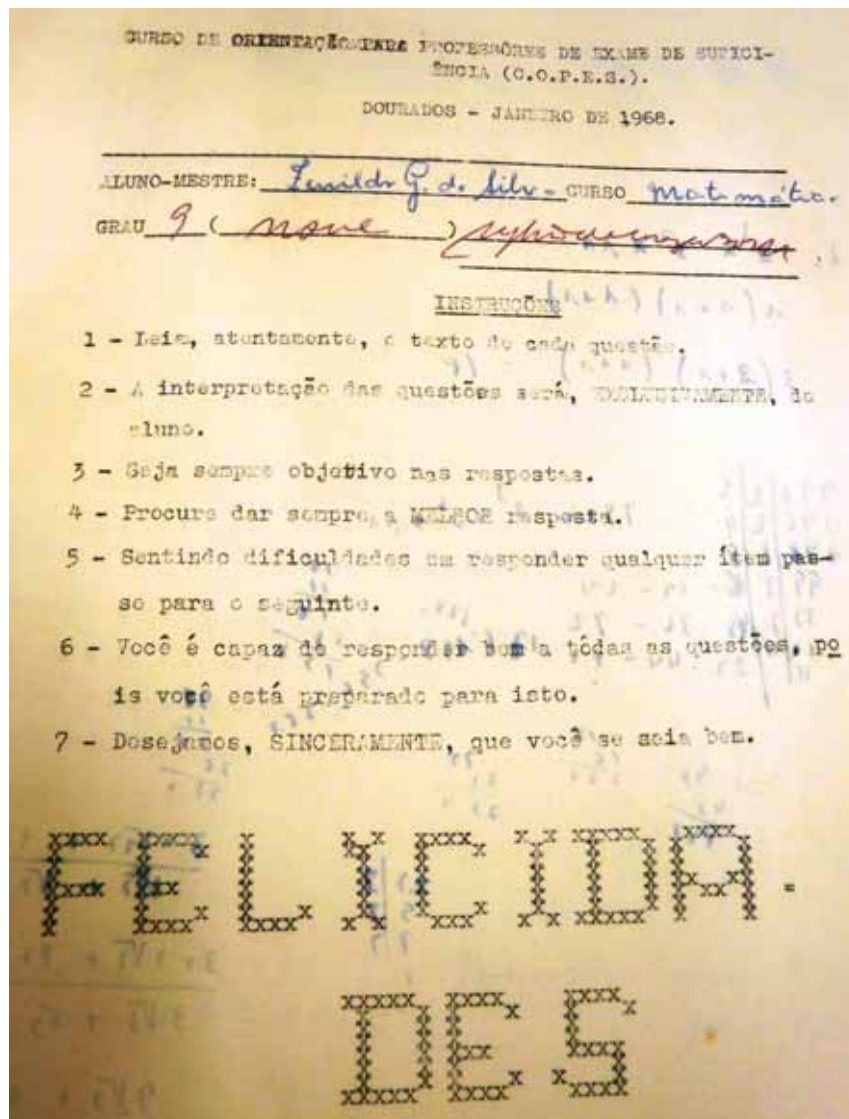 CURSO DE ORIENTAÇÃO PARA PROFESSÔRES DE EXAME DE SUFICI-
ÊNCIA (C.O.P.E.S.).
DOURADOS - JANEIRO DE 1968.
ALUNO-MESTRE: G. da Silva CURSO Matemática
GRAU 9 ( nove )
INSTRUÇÕES
1 - Leia, atentamente, o texto de cada questão.
2 - A interpretação das questões será, EXCLUSIVAMENTE, do
aluno.
3 - Seja sempre objetivo nas respostas.
4 - Procure dar sempre a MELHOR resposta.
5 - Sentindo dificuldades em responder qualquer ítem pas-
se para o seguinte.
6 - Você é capaz de responder bem a tôdas as questões, po
is você está preparado para isto.
7 - Desejamos, SINCERAMENTE, que você se saia bem.
FELICIDA-
DES